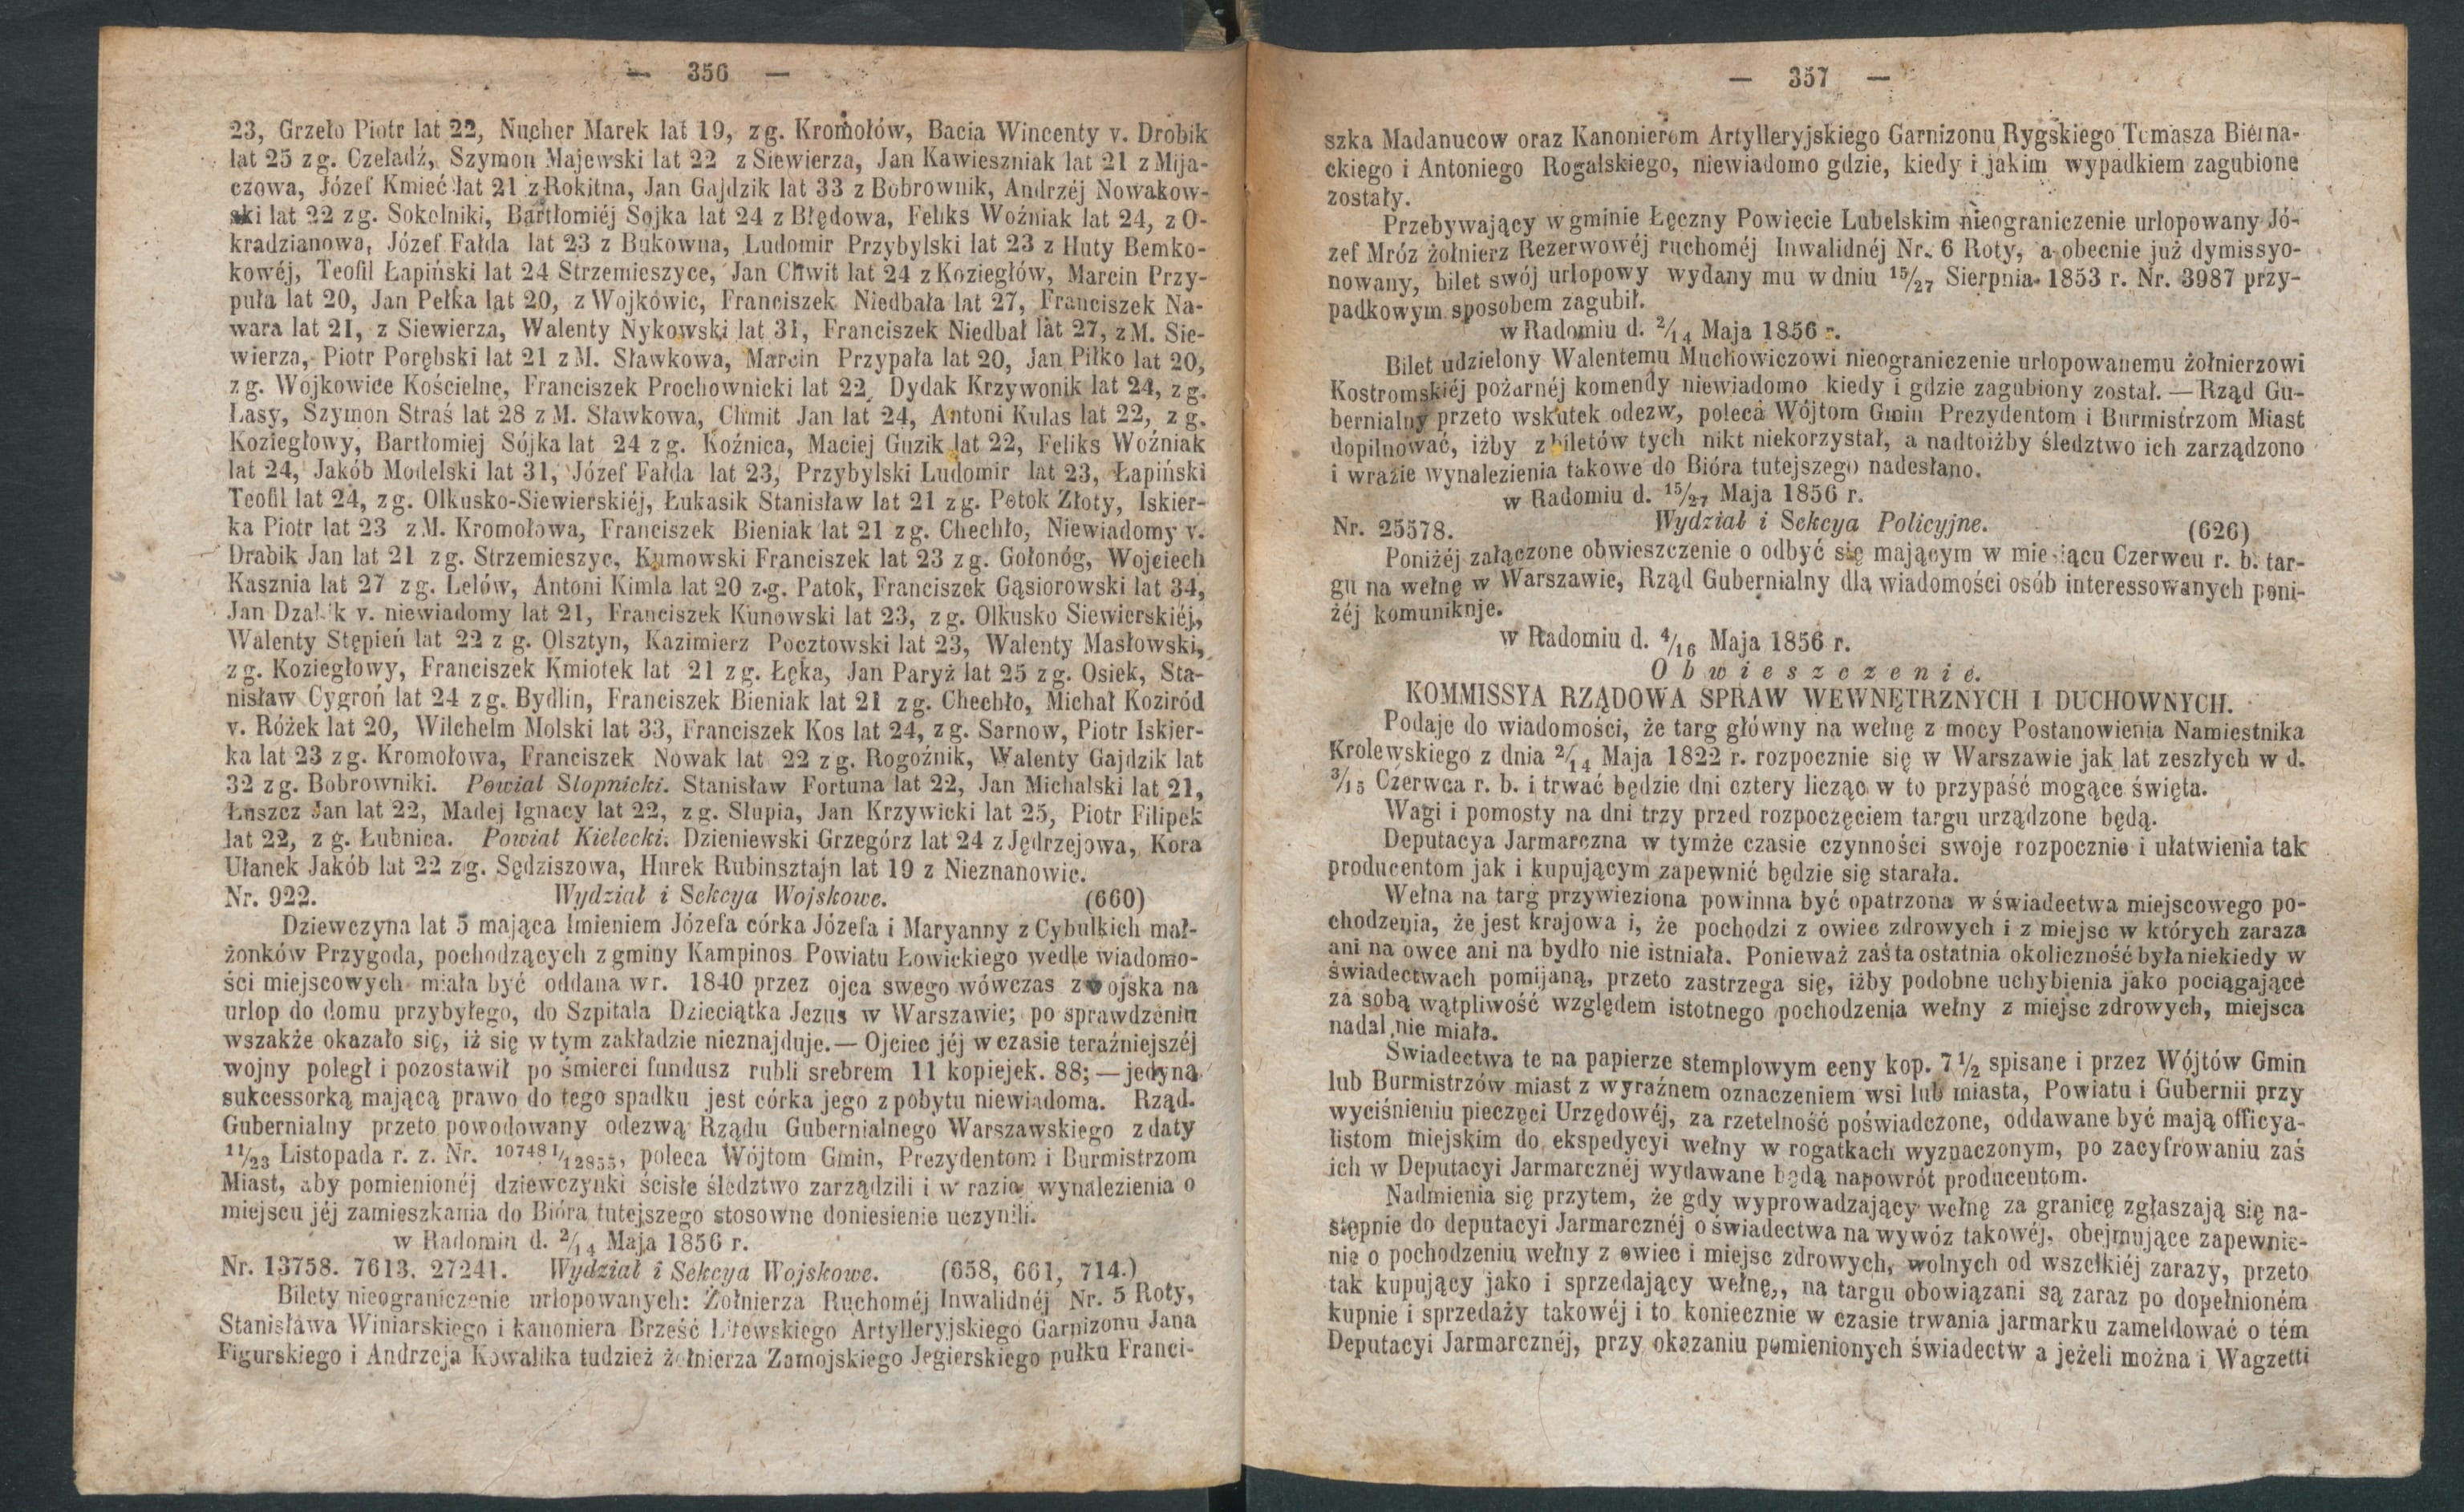 — 356 —
23, Grzeło Piotr lat 22, Nucher Marek lat 19, zg. Kromołów, Bacia Wincenty v. Drobik
lat 25 zg. Czeladź, Szymon Majewski lat 22 z Siewierza, Jan Kawieszniak lat 21 z Mija-
czowa, Józef Kmieć lat 21 z Rokitna, Jan Gajdzik lat 33 z Bobrownik, Andrzéj Nowakow-
ski lat 22 zg. Sokolniki, Bartłomiéj Sojka lat 24 z Błędowa, Feliks Woźniak lat 24, z O-
kradzianowa, Józef Fałda lat 23 z Bukowna, Ludomir Przybylski lat 23 z Huty Bemko-
kowéj, Teofil Łapiński lat 24 Strzemieszyce, Jan Chwit lat 24 z Koziegłów, Marcin Przy-
puła lat 20, Jan Pełka lat 20, z Wojkowic, Franciszek Niedbała lat 27, Franciszek Na-
wara lat 21, z Siewierza, Walenty Nykowski lat 31, Franciszek Niedbał lat 27, z M. Sie-
wierza, Piotr Porębski lat 21 z M. Sławkowa, Marcin Przypała lat 20, Jan Piłko lat 20,
zg. Wojkowice Kościelne, Franciszek Prochownicki lat 22, Dydak Krzywonik lat 24, zg.
Łasy, Szymon Straś lat 28 z M. Sławkowa, Chmit Jan lat 24, Antoni Kulas lat 22, zg.
Koziegłowy, Bartłomiej Sójka lat 24 zg. Koźnica, Maciej Guzik lat 22, Feliks Woźniak
lat 24, Jakób Modelski lat 31, Józef Fałda lat 23, Przybylski Ludomir lat 23, Łapiński
Teofil lat 24, zg. Olkusko-Siewierskiéj, Łukasik Stanisław lat 21 zg. Potok Złoty, Iskier-
ka Piotr lat 23 z M. Kromołowa, Franciszek Bieniak lat 21 zg. Chechło, Niewiadomy v.
Drabik Jan lat 21 zg. Strzemieszyc, Kumowski Franciszek lat 23 zg. Gołonóg, Wojciech
Kasznia lat 27 zg. Lelów, Antoni Kimla lat 20 z.g. Patok, Franciszek Gąsiorowski lat 34,
Jan v. niewiadomy lat 21, Franciszek Kunowski lat 23, zg. Olkusko Siewierskiéj,
Walenty Stępień lat 22 z g. Olsztyn, Kazimierz Pocztowski lat 23, Walenty Masłowski,
zg. Koziegłowy, Franciszek Kmiotek lat 21 zg. Łęka, Jan Paryż lat 25 zg. Osiek, Sta-
nisław Cygroń lat 24 zg. Bydlin, Franciszek Bieniak lat 21 zg. Chechło, Michał Koziród
v. Różek lat 20, Wilchelm Molski lat 33, Franciszek Kos lat 24, zg. Sarnow, Piotr Iskier-
ka lat 23 zg. Kromołowa, Franciszek Nowak lat 22 zg. Rogoźnik, Walenty Gajdzik lat
32 zg. Bobrowniki. Powiat Stopnicki. Stanisław Fortuna lat 22, Jan Michalski lat 21,
Łuszcz Jan lat 22, Madej Ignacy lat 22, zg. Slupia, Jan Krzywicki lat 25, Piotr Filipek
lat 22, zg. Łubnica. Powiat Kielecki. Dzieniewski Grzegórz lat 24 z Jędrzejowa, Kora
Ułanek Jakób lat 22 zg. Sędziszowa, Hurek Rubinsztajn lat 19 z Nieznanowic.
Nr. 922. Wydział i Sekcya Wojskowe. (660)
Dziewczyna lat 5 mająca Imieniem Józefa córka Józefa i Maryanny z Cybulkich mał-
żonków Przygoda, pochodzących z gminy Kampinos Powiatu Łowickiego wedle wiadomo-
ści miejscowych miała być oddana w r. 1840 przez ojca swego wówczas z wojska na
urlop do domu przybyłego, do Szpitala Dzieciątka Jezus w Warszawie; po sprawdzeniu
wszakże okazało się, iż się w tym zakładzie nieznajduje.— Ojciec jéj w czasie teraźniejszéj
wojny poległ i pozostawił po śmierci fundusz rubli srebrem 11 kopiejek. 88; — jedyną
sukcessorką mającą prawo do tego spadku jest córka jego z pobytu niewiadoma. Rząd.
Gubernialny przeto powodowany odezwą Rządu Gubernialnego Warszawskiego z daty
11/23 Listopada r. z. Nr. 10748 1/12855, poleca Wójtom Gmin, Prezydentom i Burmistrzom
Miast, aby pomienionéj dziewczynki ścisłe śledztwo zarządzili i w razie wynalezienia o
miejscu jéj zamieszkania do Bióra tutejszego stosowne doniesienie uczynili.
w Radomiu d. 2/14 Maja 1856 r.
Nr. 13758. 7613. 27241. Wydział i Sekcya Wojskowe. (658, 661, 714.)
Bilety nieograniczenie urlopowanych: Żołnierza Ruchoméj Inwalidnéj Nr. 5 Roty,
Stanisława Winiarskiego i kanoniera Brześć Litewskiego Artylleryjskiego Garnizonu Jana
Figurskiego i Andrzeja Kowalika tudzież żołnierza Zamojskiego Jegierskiego pułku Franci-
— 357 —
szka Madanucow oraz Kanonierom Artylleryjskiego Garnizonu Rygskiego Tomasza Bierna-
ckiego i Antoniego Rogalskiego, niewiadomo gdzie, kiedy i jakim wypadkiem zagubione
zostały.
Przebywający w gminie Łęczny Powiecie Lubelskim nieograniczenie urlopowany Jó-
zef Mróz żołnierz Rezerwowéj ruchoméj Inwalidnéj Nr. 6 Roty, a obecnie już dymissyo-
nowany, bilet swój urlopowy wydany mu w dniu 15/27 Sierpnia 1853 r. Nr. 3987 przy-
padkowym sposobem zagubił.
w Radomiu d. 2/14 Maja 1856 r.
Bilet udzielony Walentemu Muchowiczowi nieograniczenie urlopowanemu żołnierzowi
Kostromskiéj pożarnéj komendy niewiadomo kiedy i gdzie zagubiony został. — Rząd Gu-
bernialny przeto wskutek odezw, poleca Wójtom Gmin Prezydentom i Burmistrzom Miast
dopilnować, iżby z biletów tych nikt niekorzystał, a nadtoiżby śledztwo ich zarządzono
i wrazie wynalezienia takowe do Bióra tutejszego nadesłano.
w Radomiu d. 15/27 Maja 1856 r.
Nr. 25578. Wydział i Sekcya Policyjne. (626)
Poniżéj załączone obwieszczenie o odbyć się mającym w miesiącu Czerwcu r. b. tar-
gu na wełnę w Warszawie, Rząd Gubernialny dla wiadomości osób interessowanych poni-
żéj komuniknje.
w Radomiu d. 4/16 Maja 1856 r.
Obwieszczenie.
KOMMISSYA RZĄDOWA SPRAW WEWNĘTRZNYCH I DUCHOWNYCH.
Podaje do wiadomości, że targ główny na wełnę z mocy Postanowienia Namiestnika
Krolewskiego z dnia 2/14 Maja 1822 r. rozpocznie się w Warszawie jak lat zeszłych w d.
3/15 Czerwca r. b. i trwać będzie dni cztery licząc w to przypaść mogące święta.
Wagi i pomosty na dni trzy przed rozpoczęciem targu urządzone będą.
Deputacya Jarmarczna w tymże czasie czynności swoje rozpocznie i ułatwienia tak
producentom jak i kupującym zapewnić będzie się starała.
Wełna na targ przywieziona powinna być opatrzona w świadectwa miejscowego po-
chodzenia, że jest krajowa i, że pochodzi z owiec zdrowych i z miejsc w których zaraza
ani na owce ani na bydło nie istniała. Ponieważ zaś ta ostatnia okoliczność była niekiedy w
świadectwach pomijaną, przeto zastrzega się, iżby podobne uchybienia jako pociągające
za sobą wątpliwość względem istotnego pochodzenia wełny z miejsc zdrowych, miejsca
nadal nie miała.
Świadectwa te na papierze stemplowym ceny kop. 7 1/2 spisane i przez Wójtów Gmin
lub Burmistrzów miast z wyraźnem oznaczeniem wsi lub miasta, Powiatu i Gubernii przy
wyciśnieniu pieczęci Urzędowéj, za rzetelność poświadczone, oddawane być mają officya-
listom miejskim do ekspedycyi wełny w rogatkach wyznaczonym, po zacyfrowaniu zaś
ich w Deputacyi Jarmarcznéj wydawane będą napowrót producentom.
Nadmienia się przytem, że gdy wyprowadzający wełnę za granicę zgłaszają się na-
stępnie do deputacyi Jarmarcznéj o świadectwa na wywóz takowéj, obejmujące zapewnie-
nie o pochodzeniu wełny z owiec i miejsc zdrowych, wolnych od wszelkiéj zarazy, przeto
tak kupujący jako i sprzedający wełnę,, na targu obowiązani są zaraz po dopełnioném
kupnie i sprzedaży takowéj i to koniecznie w czasie trwania jarmarku zameldować o tém
Deputacyi Jarmarcznéj, przy okazaniu pomienionych świadectw a jeżeli można i Wagzetti